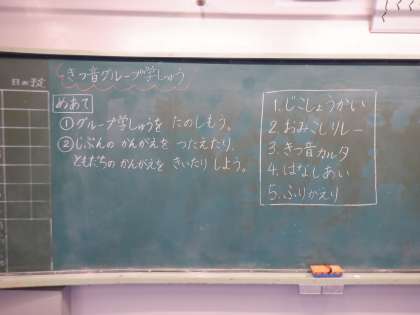 日の予定
きつ音グループ学しゅう
めあて
①グループ学しゅうを たのしもう。
②じぶんの かんがえを つたえたり、
ともだちの かんがえを きいたり しよう。
1.じこしょうかい
2.おみこしリレー
3.きつ音カルタ
4.はなしあい
5.ふりかえり